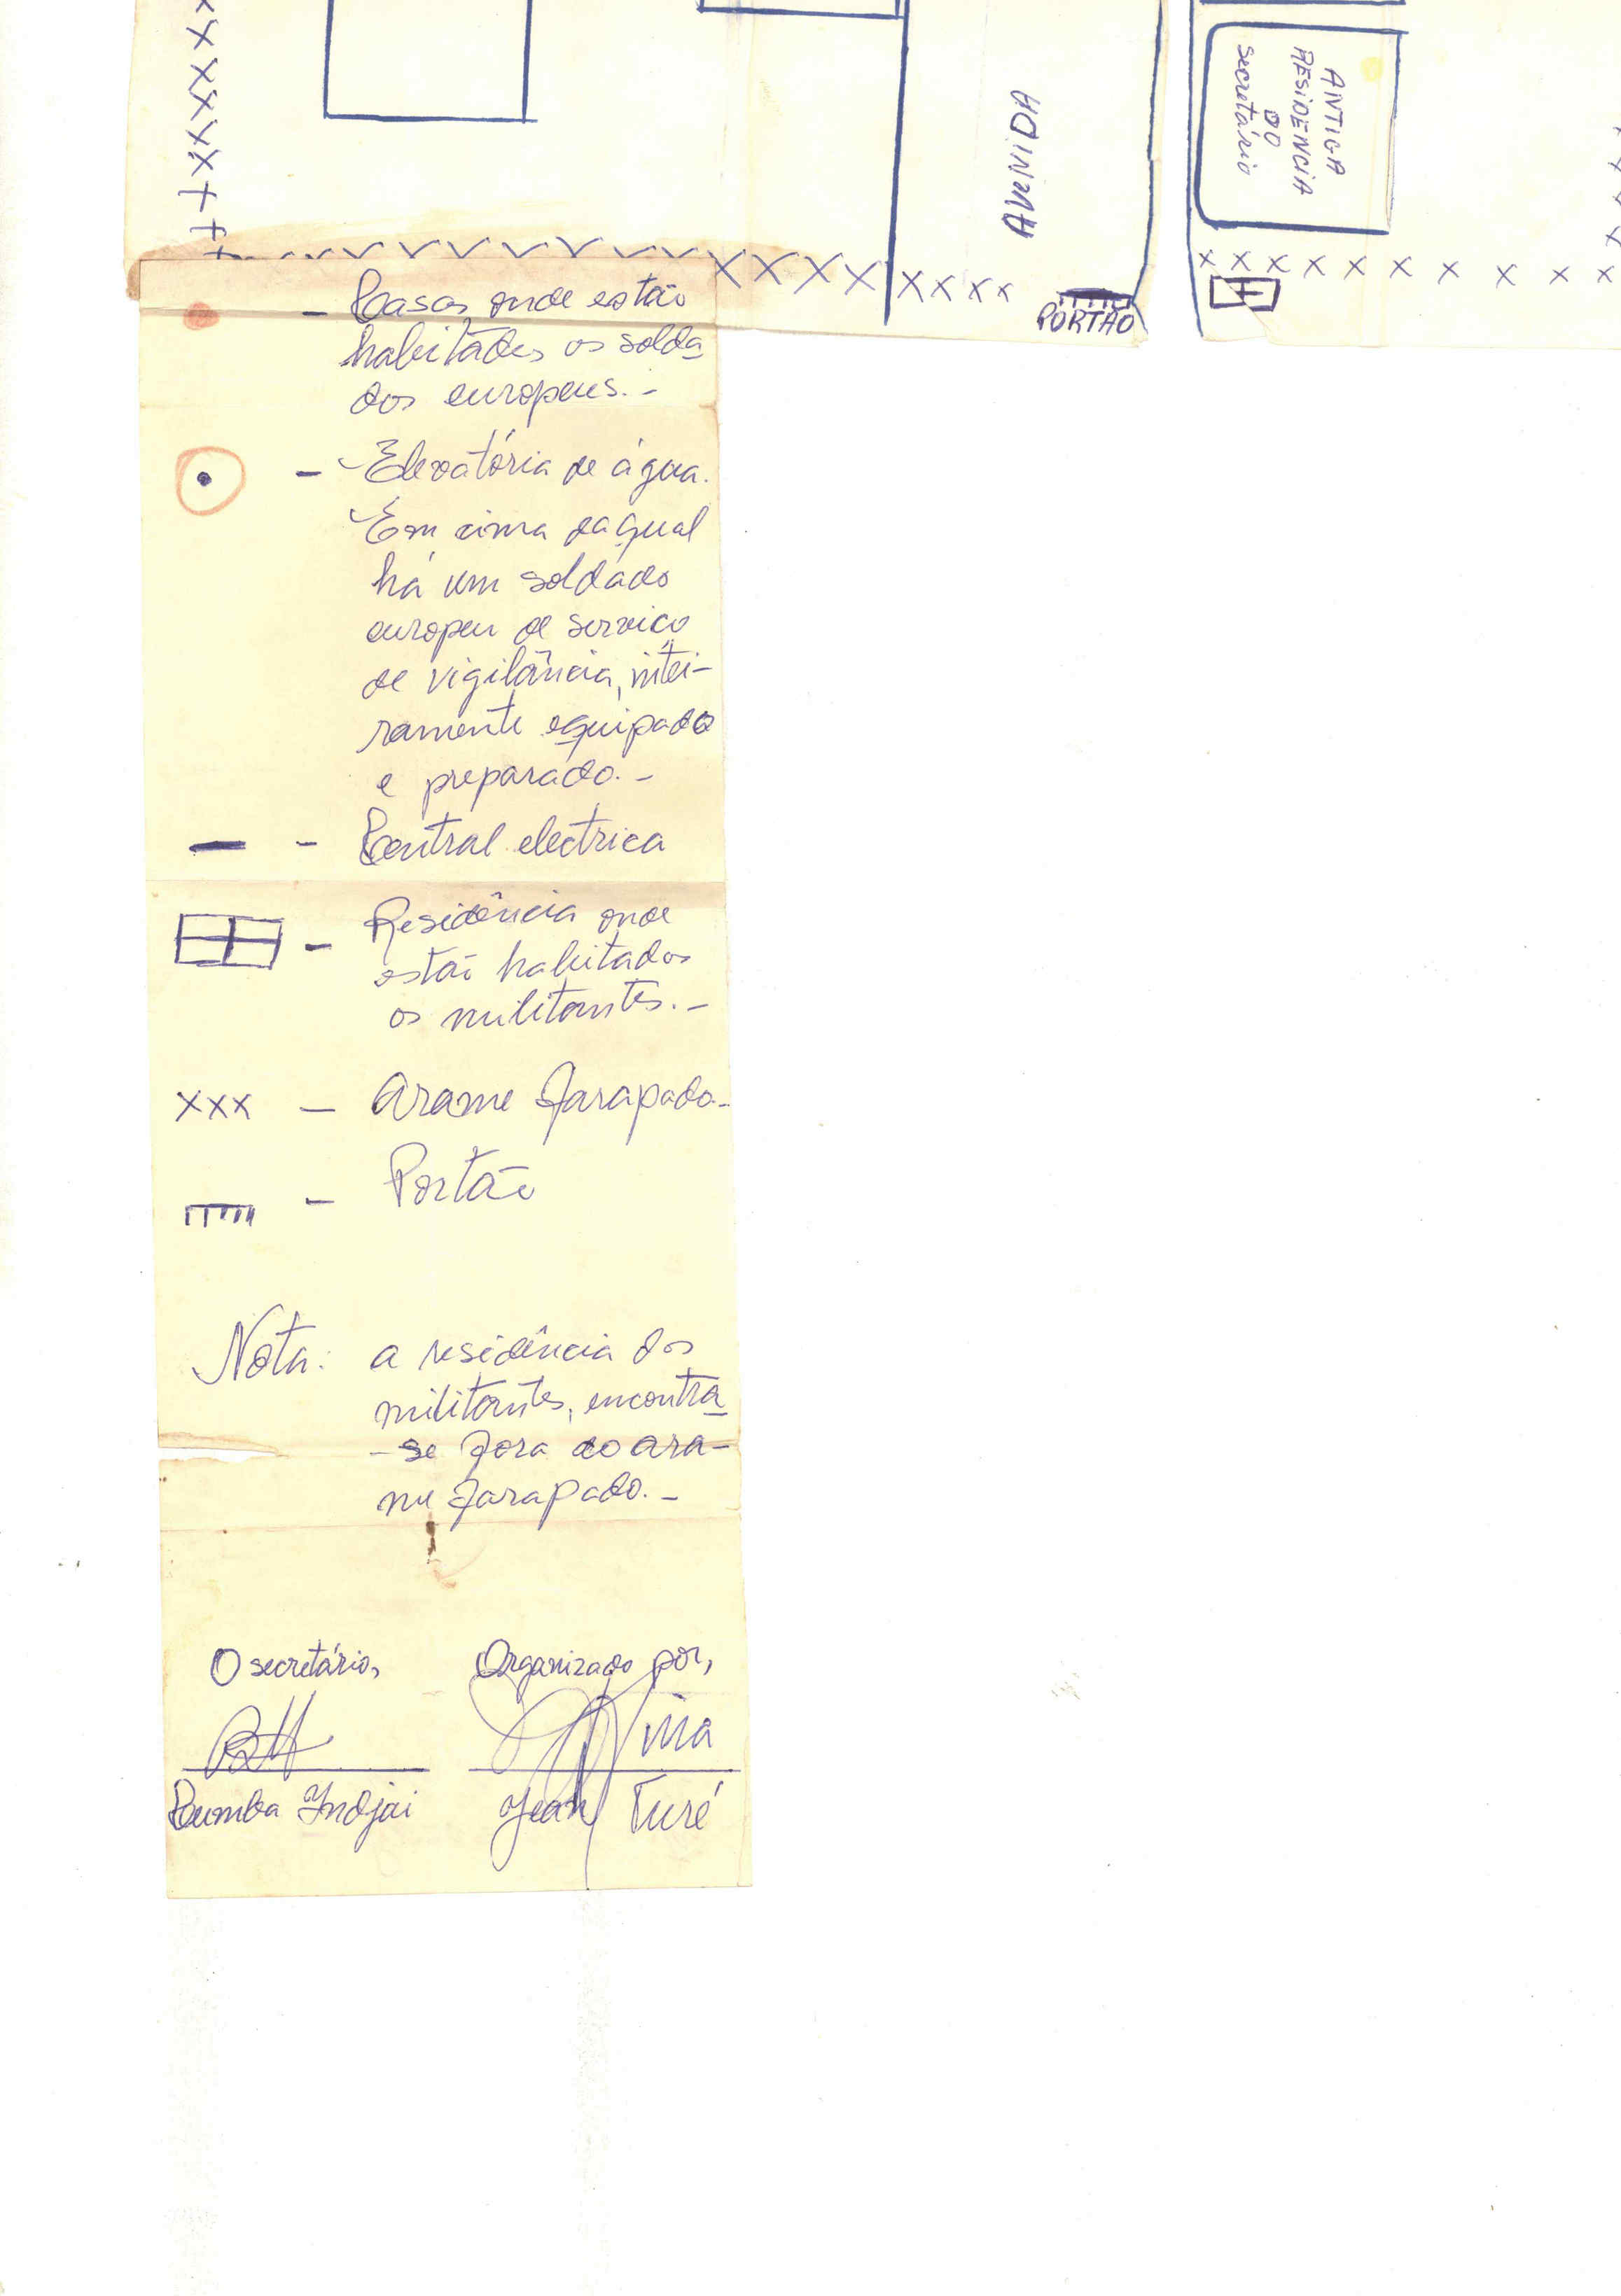 AVENIDA
PORTÃO
ANTIGA
RESIDENCIA
DO
secretário
- Casas onde estão
habitádos os solda
dos europeus. -
- Elevatória de água.
Em cima da qual
há um soldádo
europeu de serviço
de vigilância, intei-
ramente equipado
e preparádo. -
- Central electrica
- Residência onde
estão habitados
os militantes. -
xxx - Arame Farapado -
- Portão
Nota: a residência dos
militantes, encontra
-se fora do ara-
me farapado. -
O secretário, Organizado por,
Cumba Indjai Jean Turé